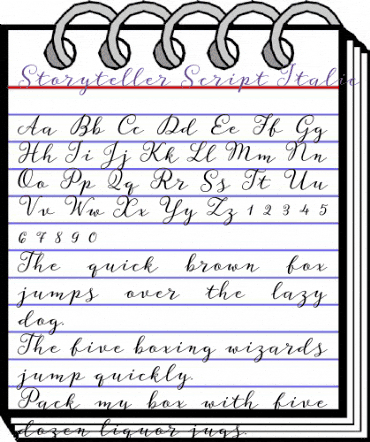 Storyteller Script Italic
Aa Bb Cc Dd Ee Ff Gg
Hh Ii Jj Kk Ll Mm Nn
Oo Pp Qq Rr Ss Tt Uu
Vv Ww Xx Yy Zz 1 2 3 4 5
6 7 8 9 0
The quick brown fox
jumps over the lazy
dog.
The five boxing wizards
jump quickly.
Pack my box with five
dozen liquor jugs.